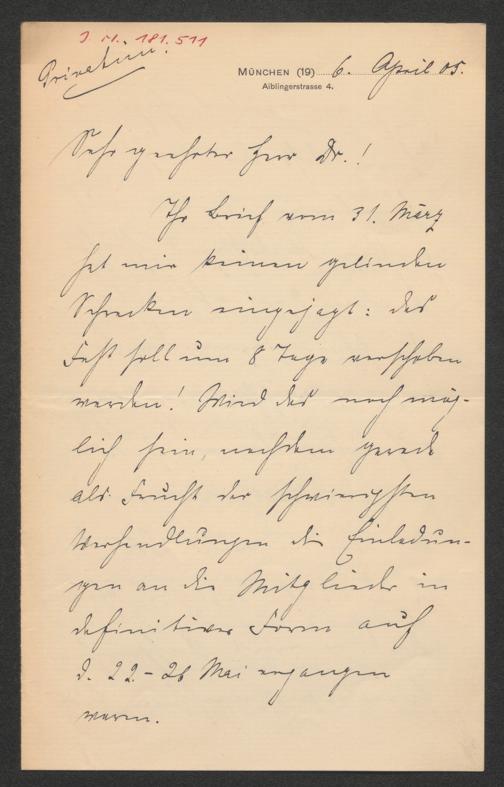 J. N. 181.511
Privatim!
MÜNCHEN (19) 6. April 05.
Aiblingerstrasse 4.
Sehr geehrter Herr Dr.!
Ihr Brief vom 31. März
hat mir keinen gelinden
Schrecken eingejagt: das
Fest soll um 8 Tage verschoben
werden! Wird das noch mög-
lich sein, nachdem gerade
als Frucht der schwierigsten
Verhandlungen die Einladun-
gen an die Mitglieder in
definitiver Form auf
d. 22-26 Mai ergangen
waren.